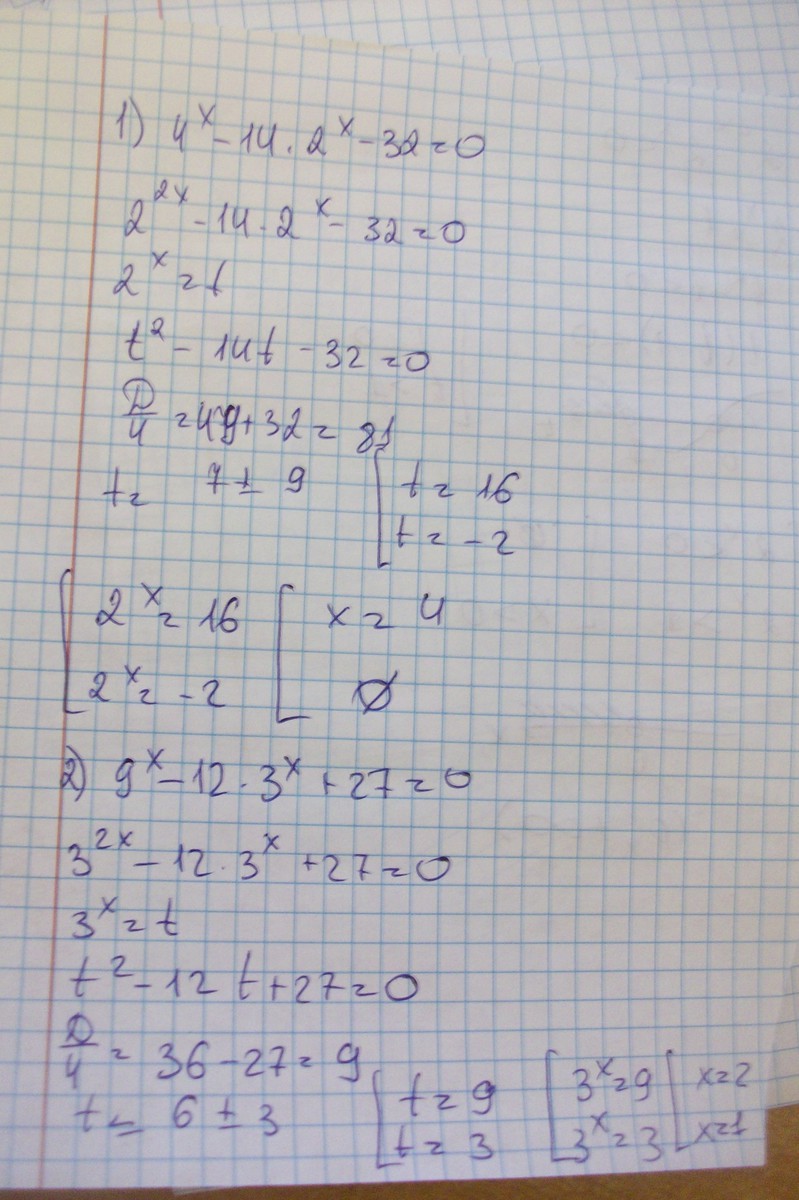 1) 4^x - 14 · 2^x - 32 = 0
2^2x - 14 · 2^x - 32 = 0
2^x = t
t^2 - 14t - 32 = 0
D/4 = 49 + 32 = 81
t = 7 ± 9 [ t = 16
t = -2
[ 2^x = 16 [ x = 4
2^x = -2 ∅
2) 9^x - 12 · 3^x + 27 = 0
3^2x - 12 · 3^x + 27 = 0
3^x = t
t^2 - 12t + 27 = 0
D/4 = 36 - 27 = 9
t = 6 ± 3 [ t = 9 [ 3^x = 9 [ x = 2
t = 3 3^x = 3 x = 1